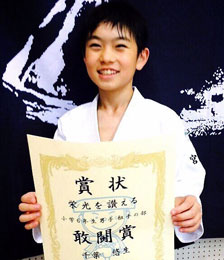 賞状
栄光を讃える
小学6年生男子組手の部
敢闘賞
千葉悠生
宮